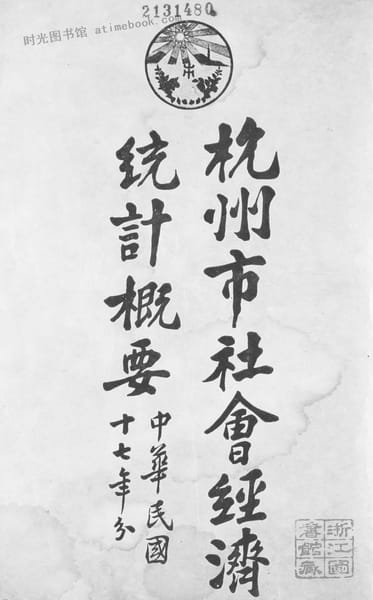 2131480
时光图书馆 atimebook.com
杭州市社會經濟
統計概要
中華民國
十七年分
浙江圖
書館藏